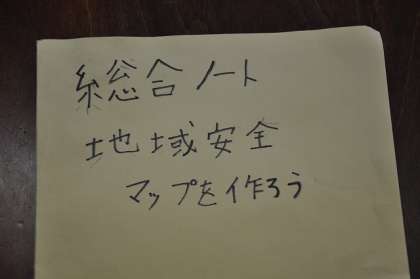 総合ノート
地域安全
マップを作ろう